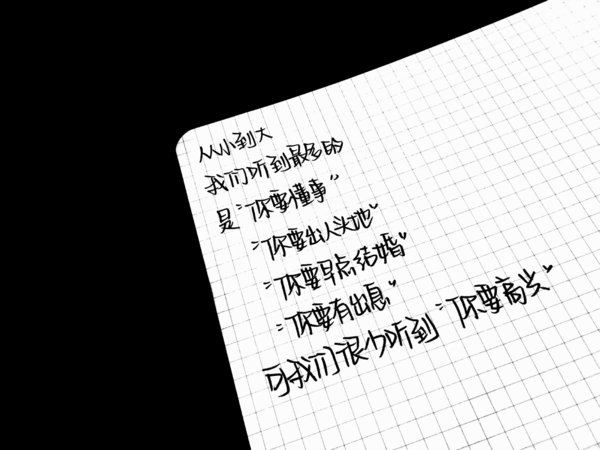 从小到大
我们听到最多的
是“你要懂事”
“你要出人头地”
“你要早点结婚”
“你要有出息”
可我们很少听到“你要高兴”